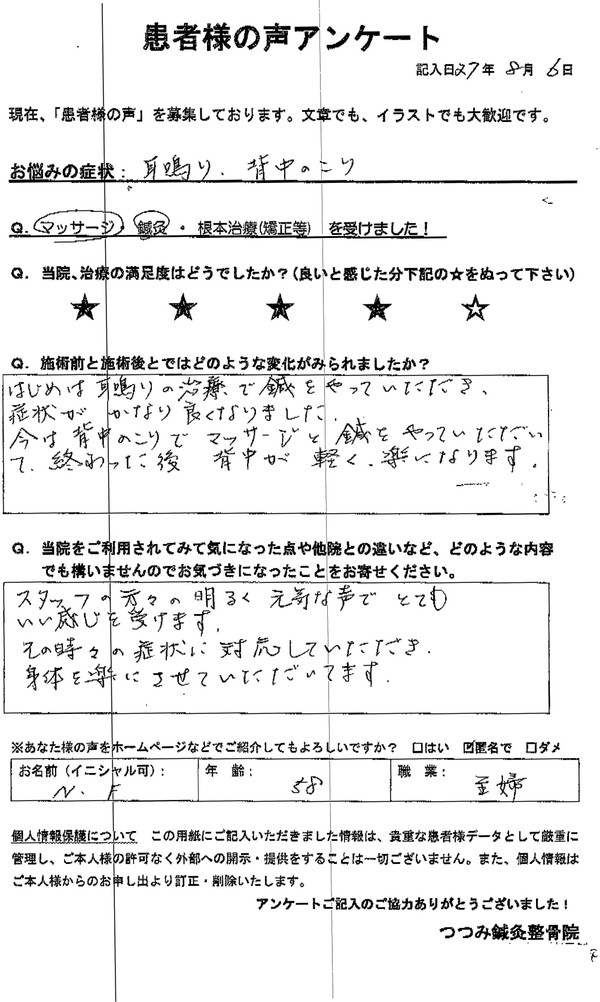 患者様の声アンケート
記入日27年 8月 6日
現在、「患者様の声」を募集しております。文章でも、イラストでも大歓迎です。
お悩みの症状： 耳鳴り、背中のこり
Q. マッサージ・鍼灸・根本治療(矯正等) を受けました！
Q. 当院、治療の満足度はどうでしたか？(良いと感じた分下記の☆をぬって下さい)
★ ★ ★ ★ ☆
Q. 施術前と施術後とではどのような変化がみられましたか？
はじめは耳鳴りの治療で鍼をやっていただき、
症状が かなり良くなりました。
今は背中のこりで マッサージと鍼をやっていただい
て、終わった後 背中が軽く、楽になります。
Q. 当院をご利用されてみて気になった点や他院との違いなど、どのような内容
でも構いませんのでお気づきになったことをお寄せください。
スタッフの方々の明るく元気な声でとても
いい感じを受けます。
その時々の症状に対応していただき、
身体を楽にさせていただいてます。
※あなた様の声をホームページなどでご紹介してもよろしいですか？ □はい ☑匿名で □ダメ
お名前（イニシャル可）： 年 齢： 職 業：
N.F 58 主婦
個人情報保護について この用紙にご記入いただきました情報は、貴重な患者様データとして厳重に
管理し、ご本人様の許可なく外部への開示・提供をすることは一切ございません。また、個人情報は
ご本人様からのお申し出より訂正・削除いたします。
アンケートご記入のご協力ありがとうございました！
つつみ鍼灸整骨院